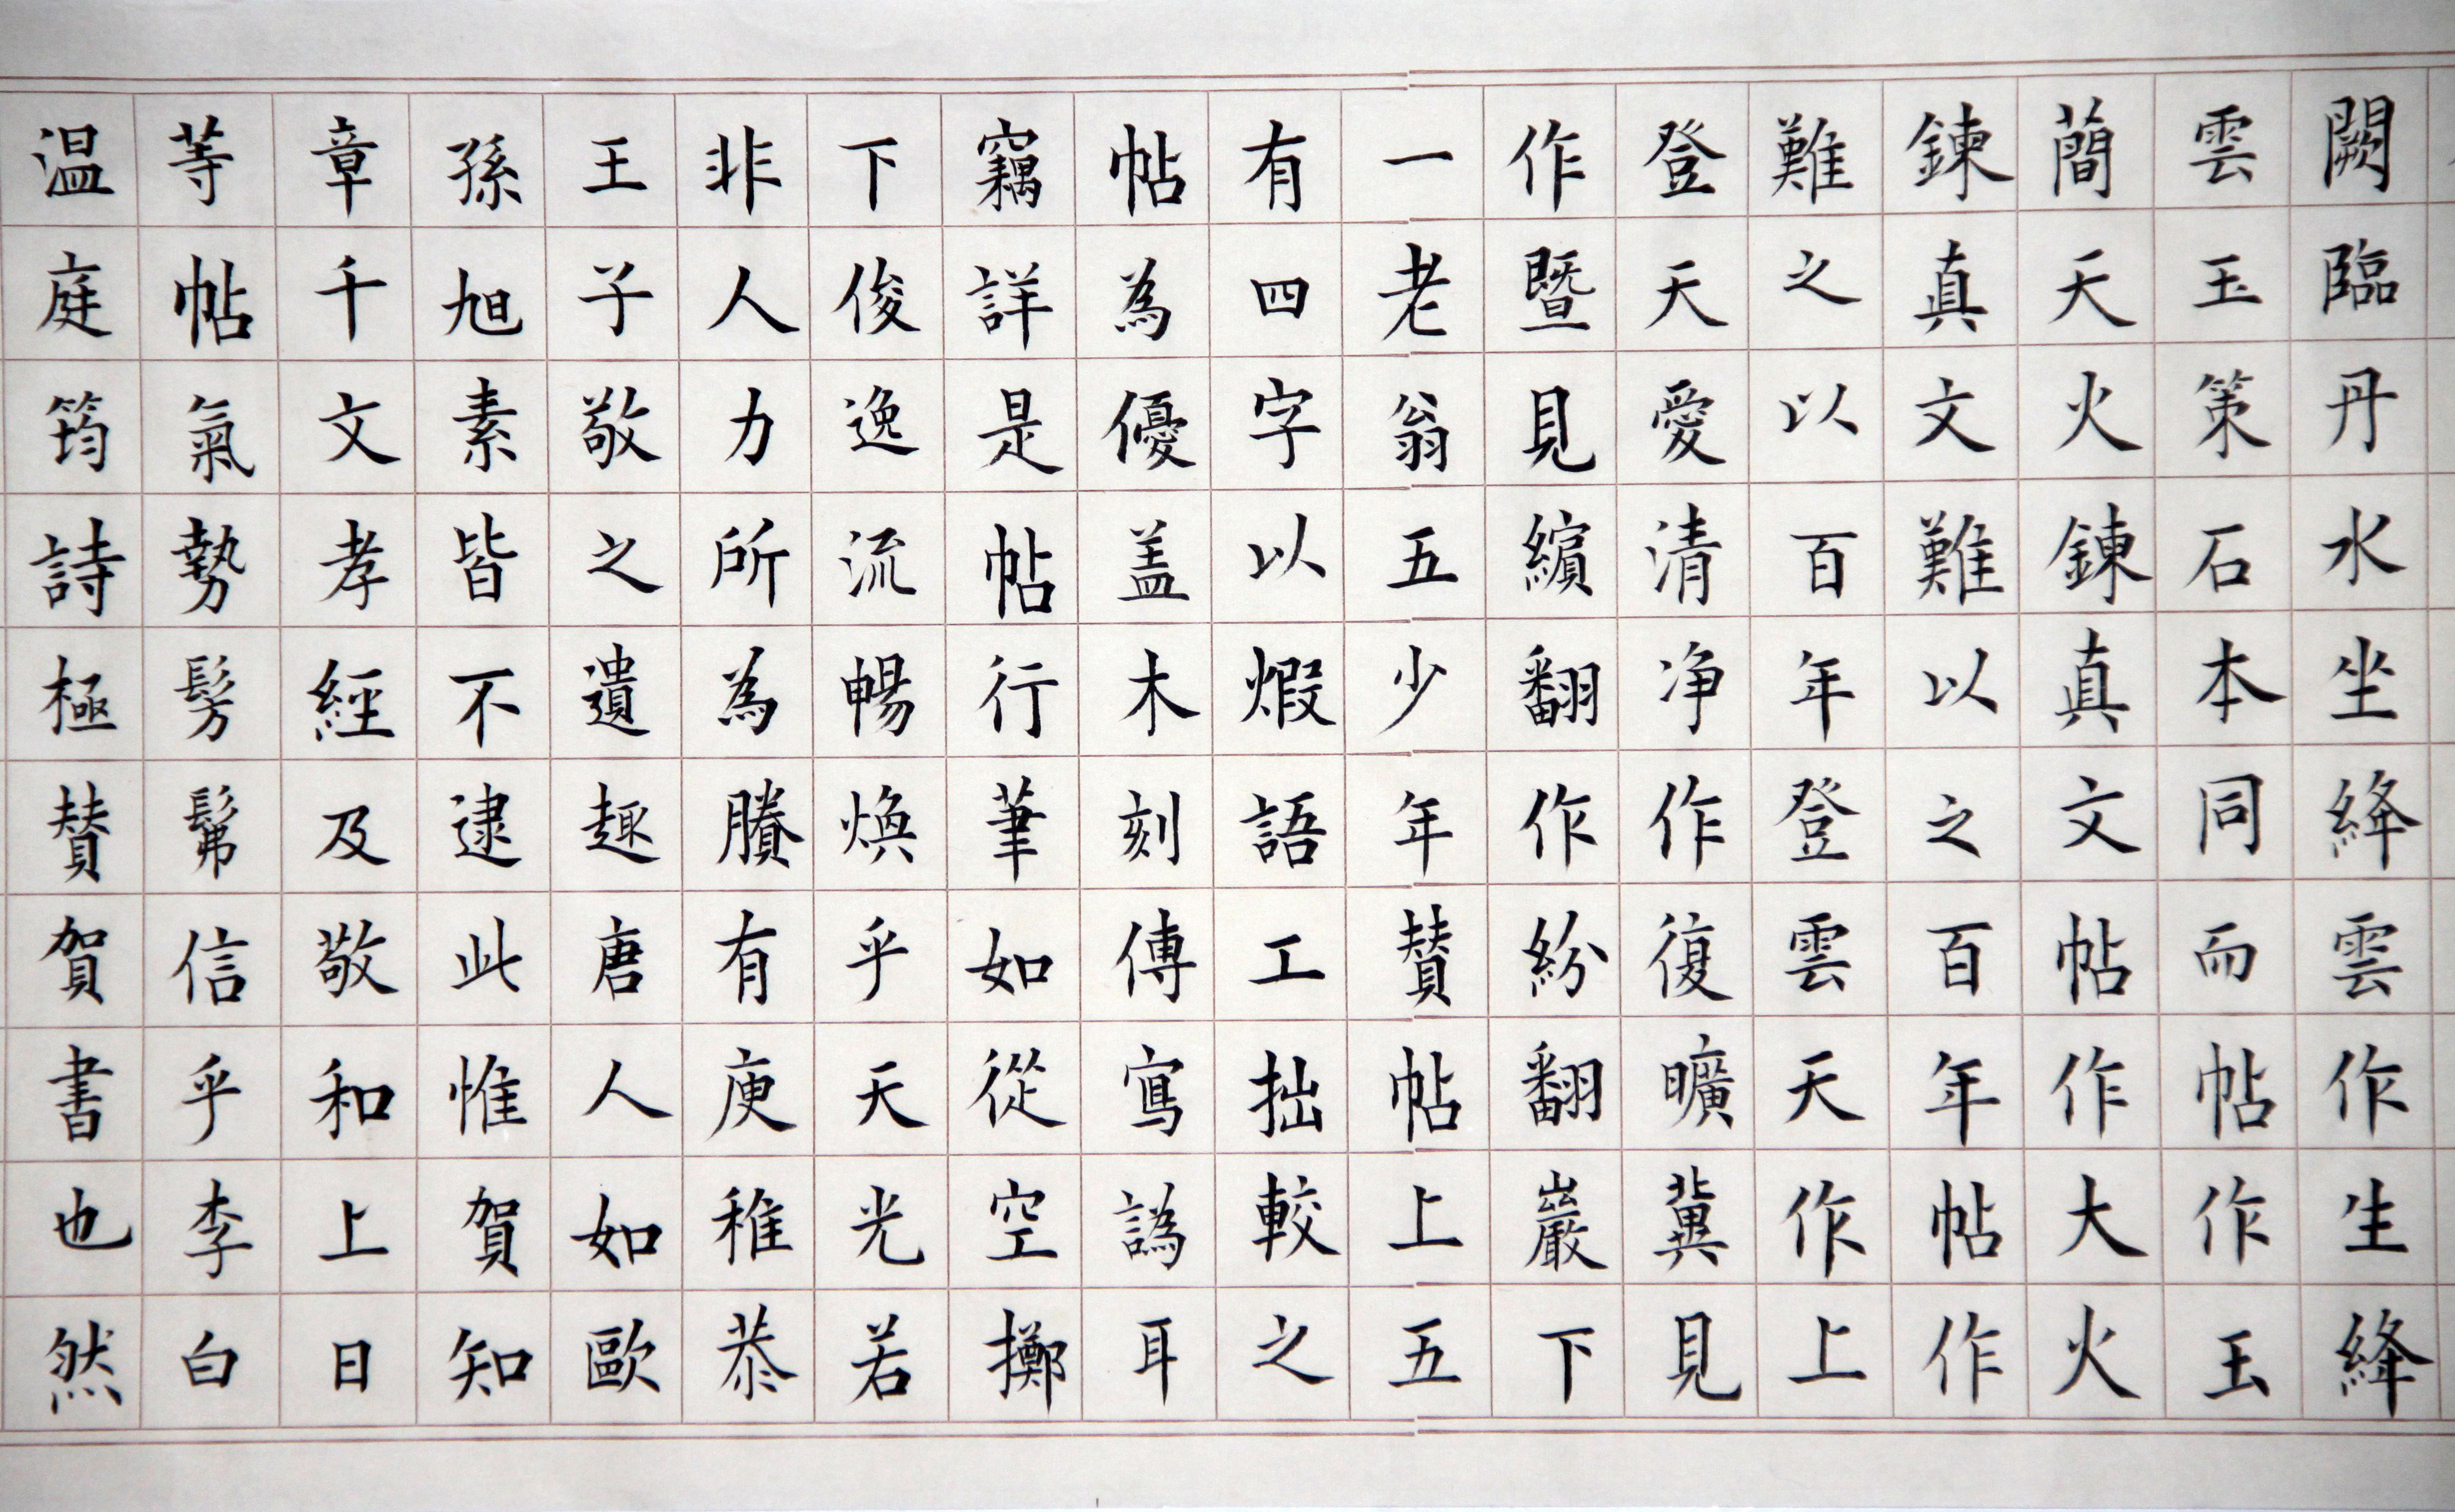 闕臨丹水坐絳雲作生絳
雲玉策石本同而帖作玉
蕳天火鍊真文帖作大火
鍊真文難以之百年帖作
難之以百年登雲天作上
登天愛清净作復曠冀見
作暨見繽翻作紛翻巖下
一老翁五少年賛帖上五
有四字以煆語工拙較之
帖為優盖木刻傳寫譌耳
竊詳是帖行筆如從空擲
下俊逸流暢煥乎天光若
非人力所為賸有庾稚恭
王子敬之遺趣唐人如歐
孫旭素皆不逮此惟賀知
章千文孝經及敬和上日
等帖氣勢髣髴信乎李白
温庭筠詩極賛賀書也然